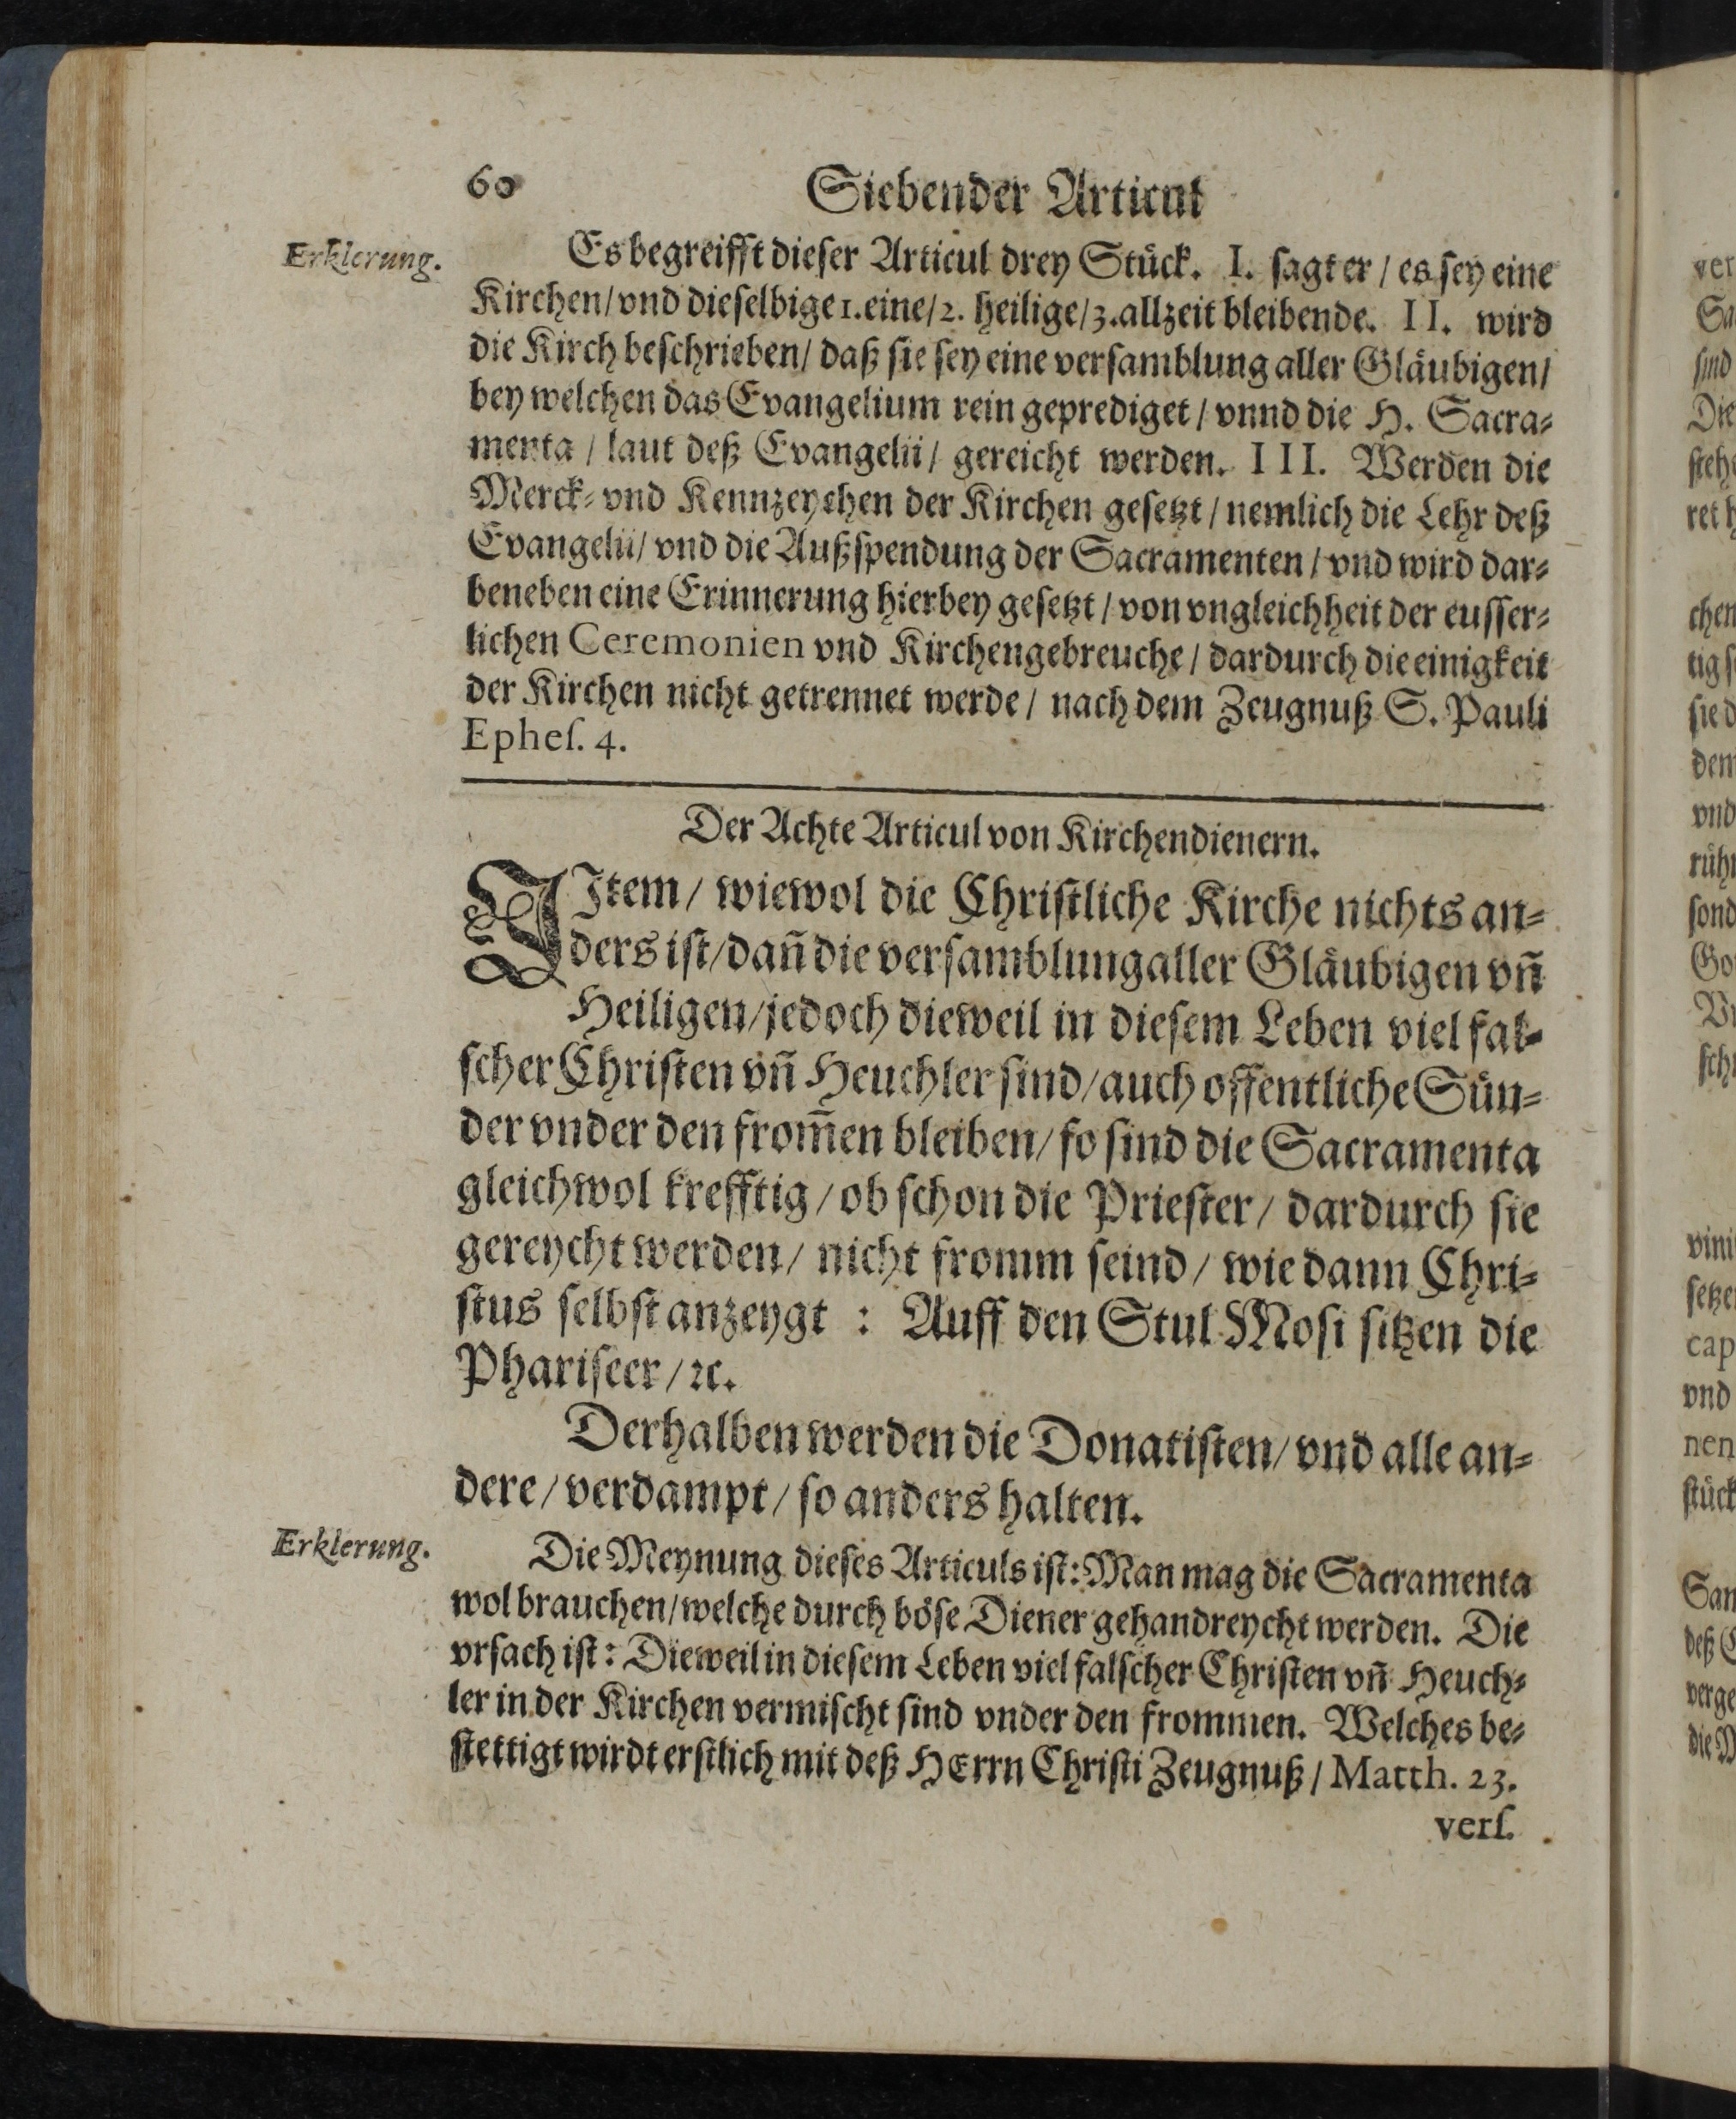 60 Siebender Articul
Erklerung.
Es begreifft dieser Articul drey Stück. I. sagt er / es sey eine
Kirchen/ vnd dieselbige 1. eine/ 2. heilige/ 3. allzeit bleibende. II. wird
die Kirch beschrieben/ daß sie sey eine versamblung aller Gläubigen/
bey welchen das Evangelium rein geprediget / vnnd die H. Sacra-
menta / laut deß Evangelii/ gereicht werden. III. Werden die
Merck- vnd Kennzeychen der Kirchen gesetzt / nemlich die Lehr deß
Evangelii/ vnd die Außspendung der Sacramenten / vnd wird dar-
beneben eine Erinnerung hierbey gesetzt / von vngleichheit der eusser-
lichen Ceremonien vnd Kirchengebreuche / dardurch die einigkeit
der Kirchen nicht getrennet werde / nach dem Zeugnuß S. Pauli
Ephes. 4.
Der Achte Articul von Kirchendienern.
JItem/ wiewol die Christliche Kirche nichts an-
ders ist/ dañ die versamblung aller Gläubigen vñ
Heiligen/ jedoch dieweil in diesem Leben viel fal-
scher Christen vñ Heuchler sind/ auch offentliche Sün-
der vnder den from̃en bleiben/ so sind die Sacramenta
gleichwol krefftig / ob schon die Priester / dardurch sie
gereycht werden/ nicht fromm seind / wie dann Chri-
stus selbst anzeygt : Auff den Stul Mosi sitzen die
Phariseer / ꝛc.
Derhalben werden die Donatisten/ vnd alle an-
dere / verdampt / so anders halten.
Erklerung.
Die Meynung dieses Articuls ist: Man mag die Sacramenta
wol brauchen/ welche durch böse Diener gehandreycht werden. Die
vrsach ist: Dieweil in diesem Leben viel falscher Christen vñ Heuch-
ler in der Kirchen vermischt sind vnder den frommen. Welches be-
stettigt wirdt erstlich mit deß HErrn Christi Zeugnuß / Matth. 23.
vers.